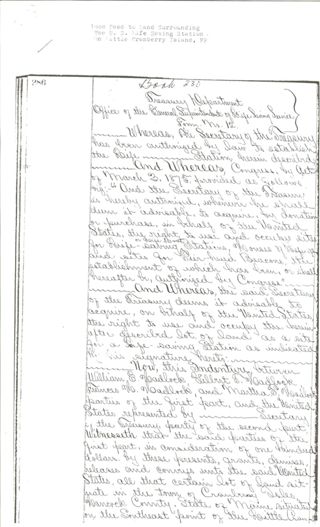 Deed to Land Surrounding
The U. S. Life Saving Station
on Little Cranberry Island, ME
Book 230
Treasury Department
Office of the General Superintendent of Life Saving Service
Form No. 12.
Whereas, the Secretary of the Treasury
has been authorized by law to establish
the Life Station herein described
And Whereas, Congress, by Act
of March 3, 1875, provided as follows
viz: "And the Secretary of the Treasury
is hereby authorized, whenever he shall
deem it advisable, to acquire, by donation
or purchase, in behalf of the United
States, the right to use and occupy sites
for Life-saving Stations, Houses of Refuge
and sites for Pier-head Beacons, the
establishment of which has been, or shall
hereafter be authorized by Congress."
And Whereas, the said Secretary
of the Treasury deems it advisable to
acquire, on behalf of the United States,
the right to use and occupy the herein
after described lot of land as a site
for a Life-saving Station as indicated
by his signature hereto.
Now, this Indenture, between
William E. Hadlock, Gilbert T. Hadlock
Hadlock and Martha Hadlock
parties of the first part, and the United
States represented by Secretary
of the Treasury party of the second part
Witnesseth that the said parties of the
first part, in consideration of one hundred
dollars by these presents, grants, demise,
release and convey unto the said United
States, all that certain lot of land sit-
uate in the town of Cranberry Isles
Hancock County, State of Maine, situated
on the Southeast point of the Little Cran-